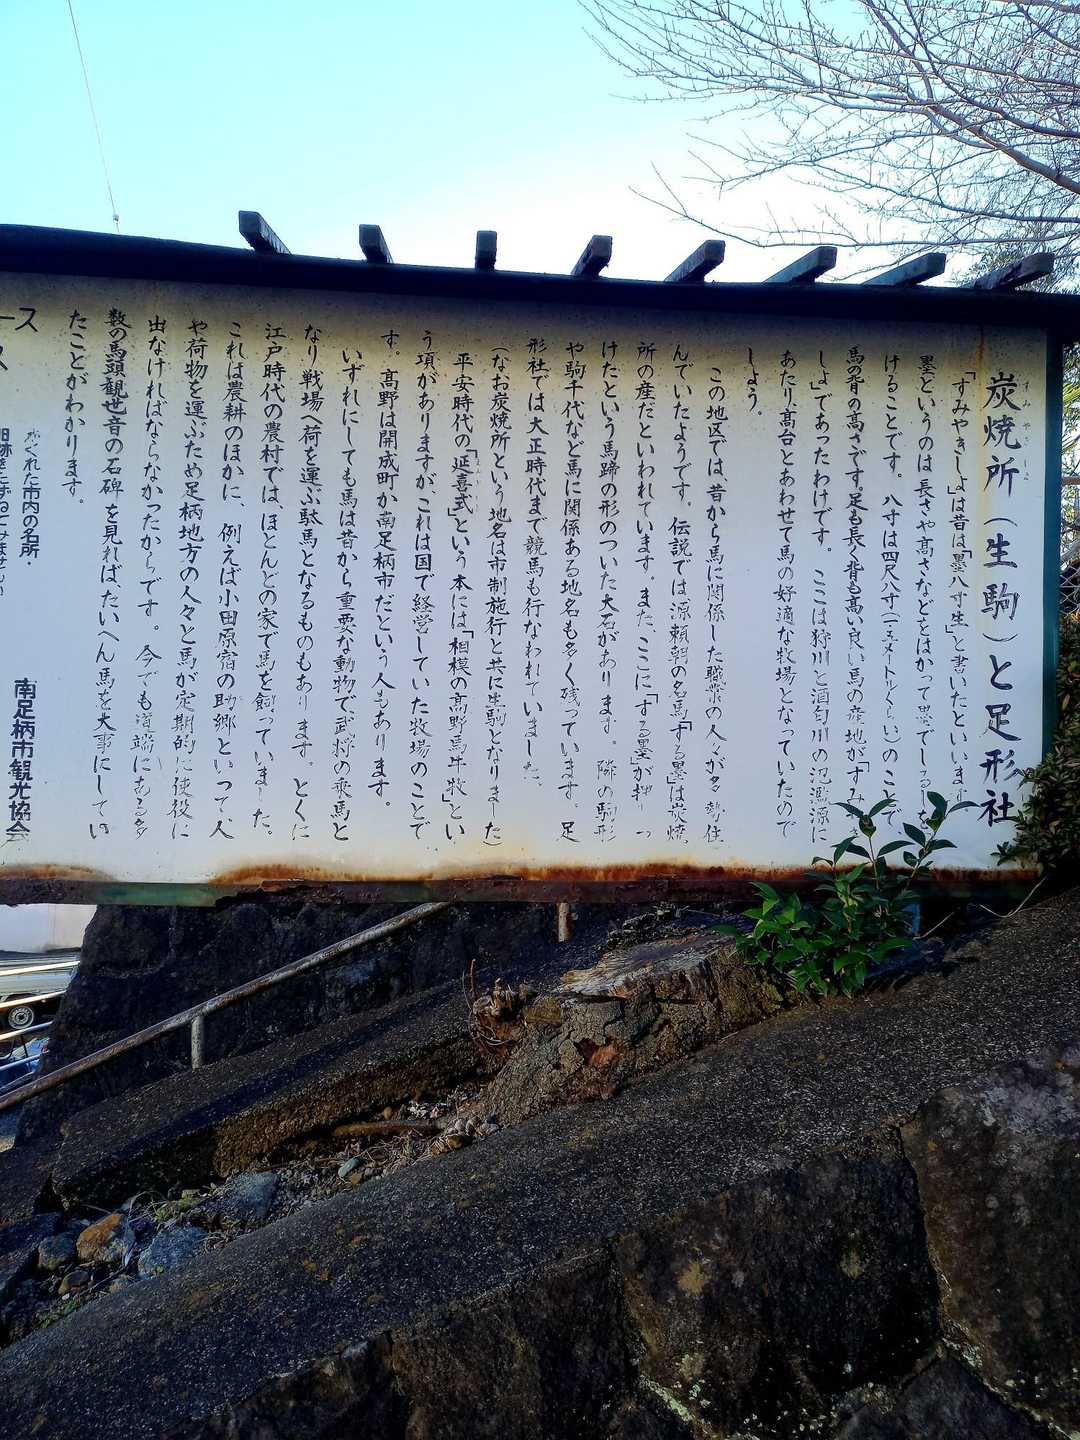 炭焼所(生駒)と足形社
すみやきしょ
「すみやきしょ」は昔は「墨八寸生」と書いたといいます
墨というのは長さや高さなどをはかって墨でしるしを
けることです。八寸は四尺八寸(一・五メートルくらい)のことで、
馬の背の高さです。足も長く背も高い良い馬の産地が「すみ
しょ」であったわけです。ここは狩川と酒匂川の氾濫源に
あたり、高台とあわせて馬の好適な牧場となっていたので
しょう。
この地区では、昔から馬に関係した職業の人々が多勢住
んでいたようです。伝説では、源頼朝の名馬「する墨」は炭焼
所の産だといわれています。また、ここに「する墨」が押っ
けたという馬蹄の形のついた大石があります。隣の駒形
や駒千代など馬に関係ある地名も多く残っています。足
形社では大正時代まで競馬も行なわれていました。
(なお炭焼所という地名は市制施行と共に生駒となりました)
平安時代の「延喜式」という本には「相模の高野馬牛牧」とい
う項がありますが、これは国で経営していた牧場のことで
す。高野は開成町か南足柄市だという人もあります。
いずれにしても馬は昔から重要な動物で、武将の乗馬と
なり戦場へ荷を運ぶ駄馬となるものもあります。とくに
江戸時代の農村では、ほとんどの家で馬を飼っていました。
これは農耕のほかに、例えば小田原宿の助郷といって人
や荷物を運ぶため足柄地方の人々と馬が定期的に使役に
出なければならなかったからです。今でも道端にある多
数の馬頭観世音の石碑を見れば、たいへん馬を大事にしてい
たことがわかります。
南足柄市観光協会
ース
かくれた市内の名所・
旧跡をたずねてみませんか